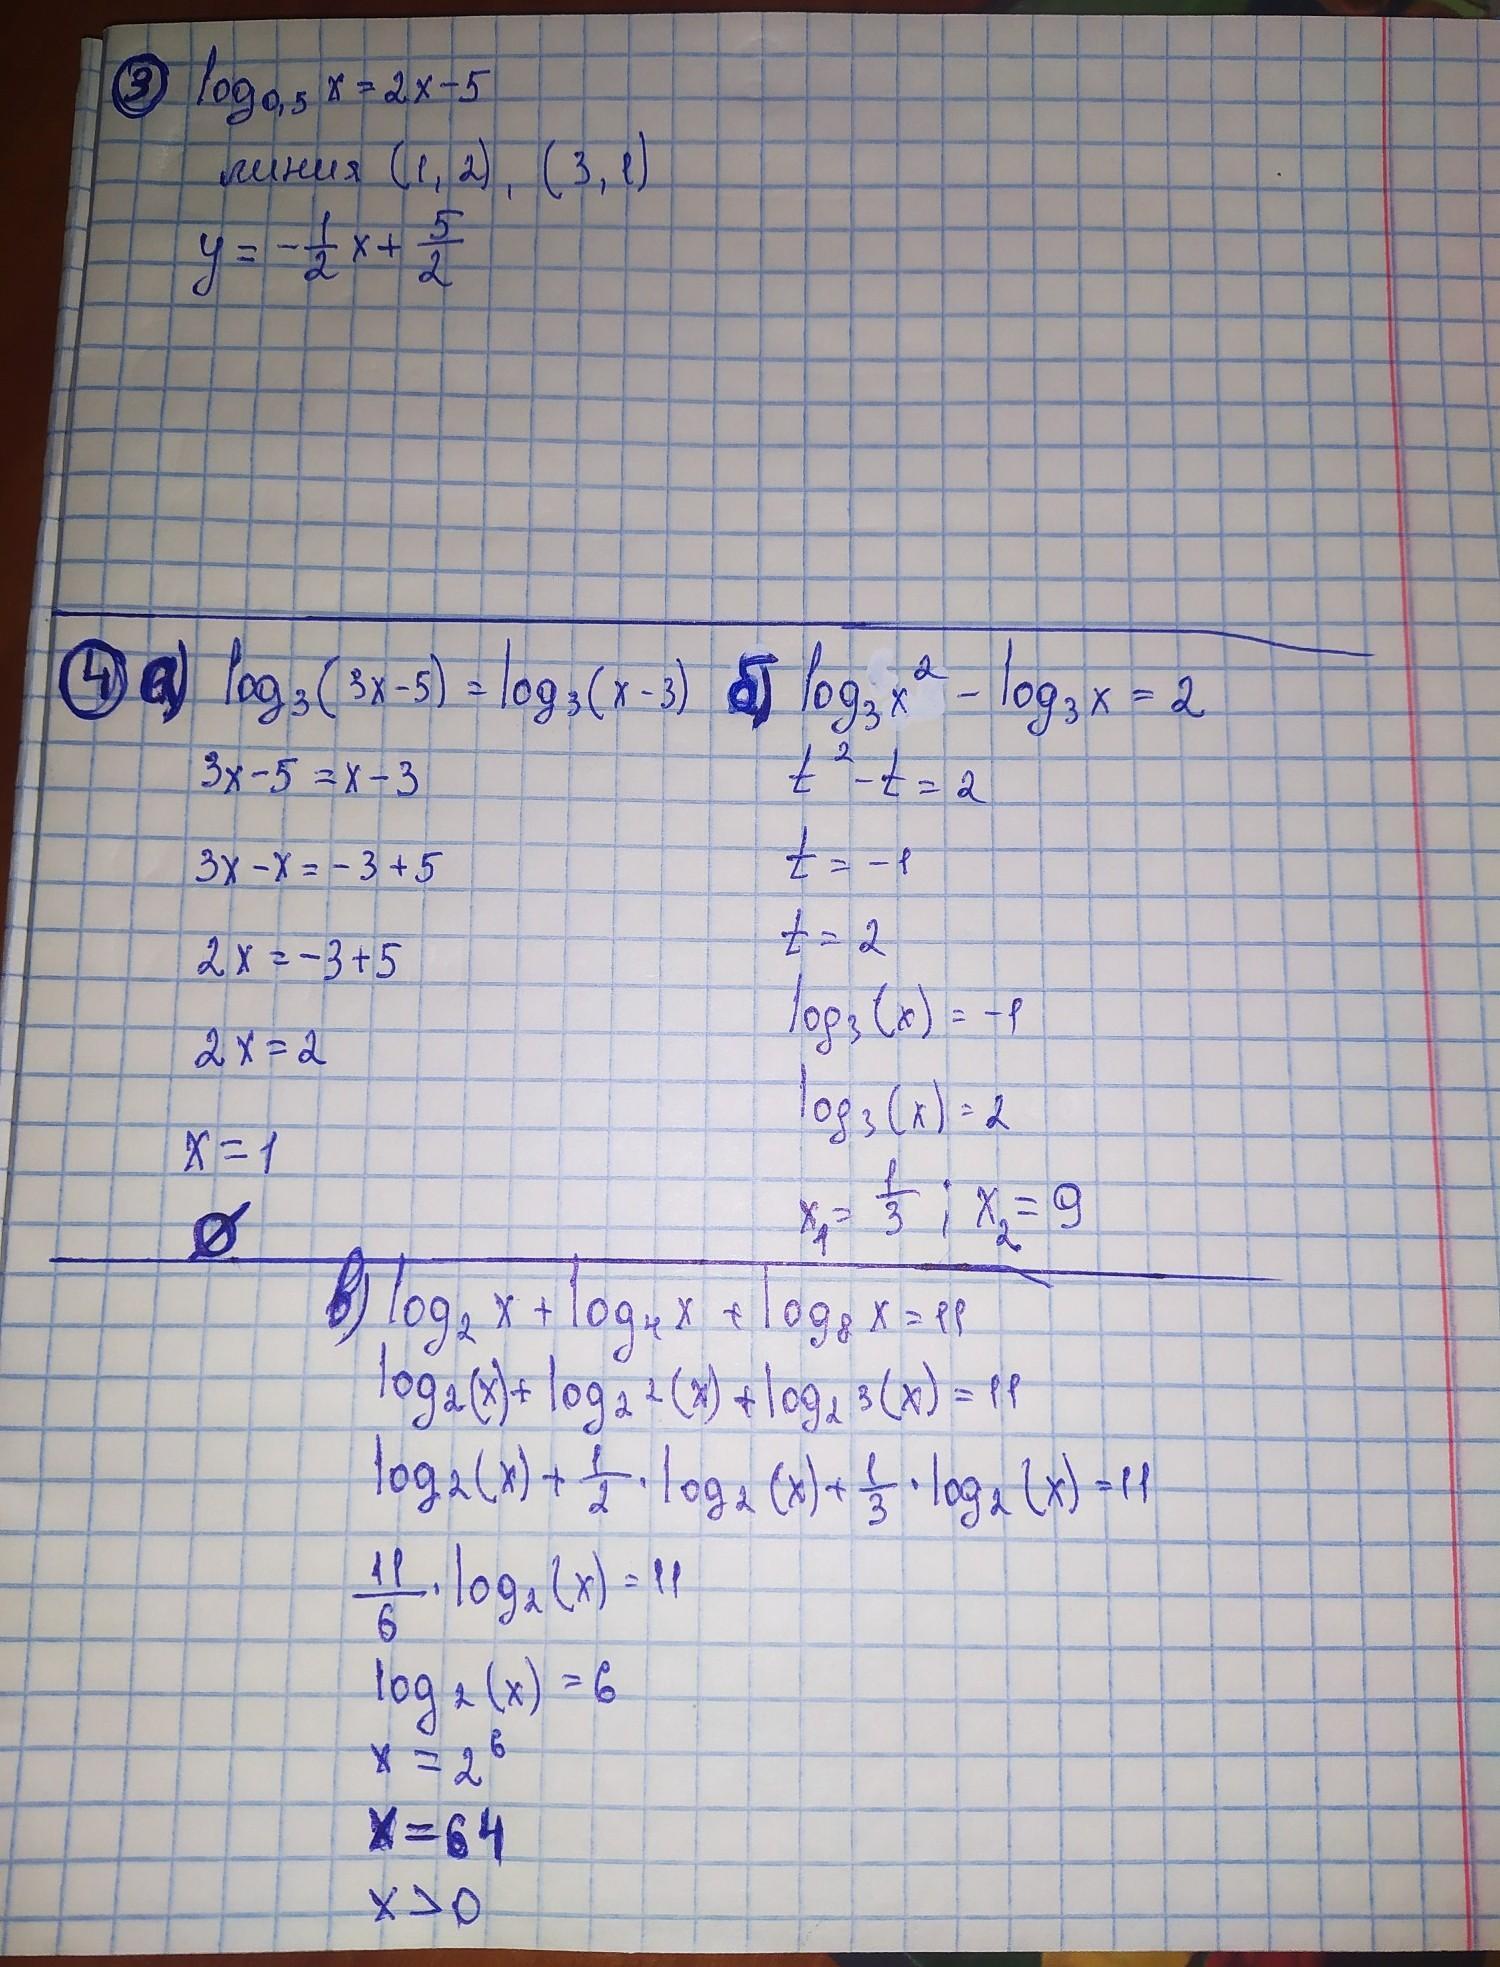 3 log₀,₅ x = 2x - 5
линия (1, 2), (3, 1)
y = - 1/2 x + 5/2
4 а) log₃(3x - 5) = log₃(x - 3)
3x - 5 = x - 3
3x - x = - 3 + 5
2x = -3 + 5
2x = 2
x = 1
∅
б) log₃x² - log₃x = 2
t² - t = 2
t = -1
t = 2
log₃(x) = -1
log₃(x) = 2
x₁ = 1/3 ; x₂ = 9
в) log₂ x + log₄ x + log₈ x = 11
log₂(x) + log₂ 2(x) + log₂ 3(x) = 11
log₂(x) + 1/2 · log₂(x) + 1/3 · log₂(x) = 11
11/6 · log₂(x) = 11
log₂(x) = 6
x = 2⁶
x = 64
x > 0